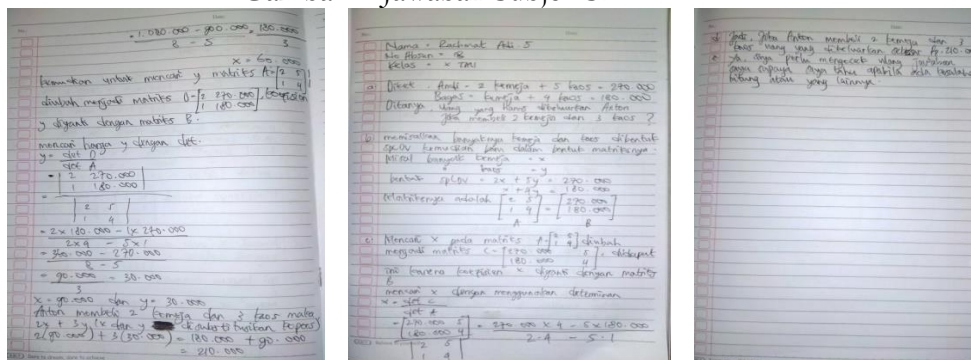 = 1.080.000 - 900.000 = 180.000
8 - 5 3
x = 60.000
kemudian untuk mencari y matriks A = [2 5
1 4]
diubah menjadi matriks D = [2 270.000
1 180.000], koefisien
y diganti dengan matriks B.
mencari harga y dengan det.
y = det D
det A
= |2 270.000
1 180.000|
|2 5
1 4|
= 2 x 180.000 - 1 x 270.000
2 x 4 - 5 x 1
= 360.000 - 270.000
8 - 5
= 90.000 = 30.000
3
x = 90.000 dan y = 30.000
Anton membeli 2 kemeja dan 3 kaos maka
2x + 3y (x dan y disubstitusikan
2(60.000) + 3(30.000) = 120.000 + 90.000
= 210.000
Nama = Rachmat
No Absen =
Kelas = X
a Diket : Andi = 2 kemeja + 5 kaos = 270.000
Bagas = kemeja + 4 kaos = 180.000
Ditanya uang yang Harus dikeluarkan Anton
jika membeli 2 kemeja dan 3 kaos ?
b memisalkan banyaknya kemeja dan kaos dibentuk
SPLDV kemudian dalam bentuk matriksnya.
Misal banyak kemeja = x
kaos = y
bentuk SPLDV = 2x + 5y = 270.000
x + 4y = 180.000
Matriksnya adalah [2 5
1 4] [270.000
180.000]
A B
c Mencari x pada matriks A = [2 5
1 4] diubah
menjadi matriks C = [270.000 5
180.000 4], didapat
ini karena koefisien x diganti dengan matriks
B
mencari x dengan menggunakan determinan
x = det C
det A
= |270.000 5
180.000 4| = 270.000 x 4 - 5 x 180.000
|2 5
1 4| 2.4 - 5.1
d Jadi, Jika Anton membeli 2 kemeja dan 3
kaos uang yang dikeluarkan sebesar Rp. 210.000
e Ya, saya perlu mengecek ulang jawaban
saya supaya saya tahu apabila ada kesalahan
hitung atau yang lainnya.